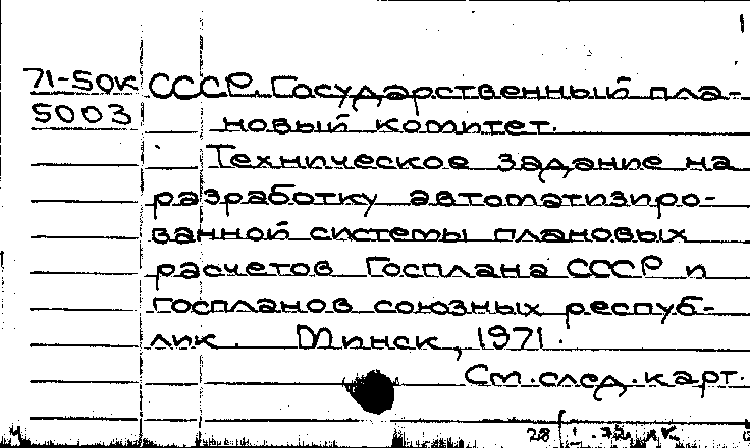 1
71-50к СССР. Государственный пла-
5003 новый комитет.
Техническое задание на
разработку автоматизиро-
ванной системы плановых
расчетов Госплана СССР и
госпланов союзных респуб-
лик. Минск, 1971.
См. след. карт.
28